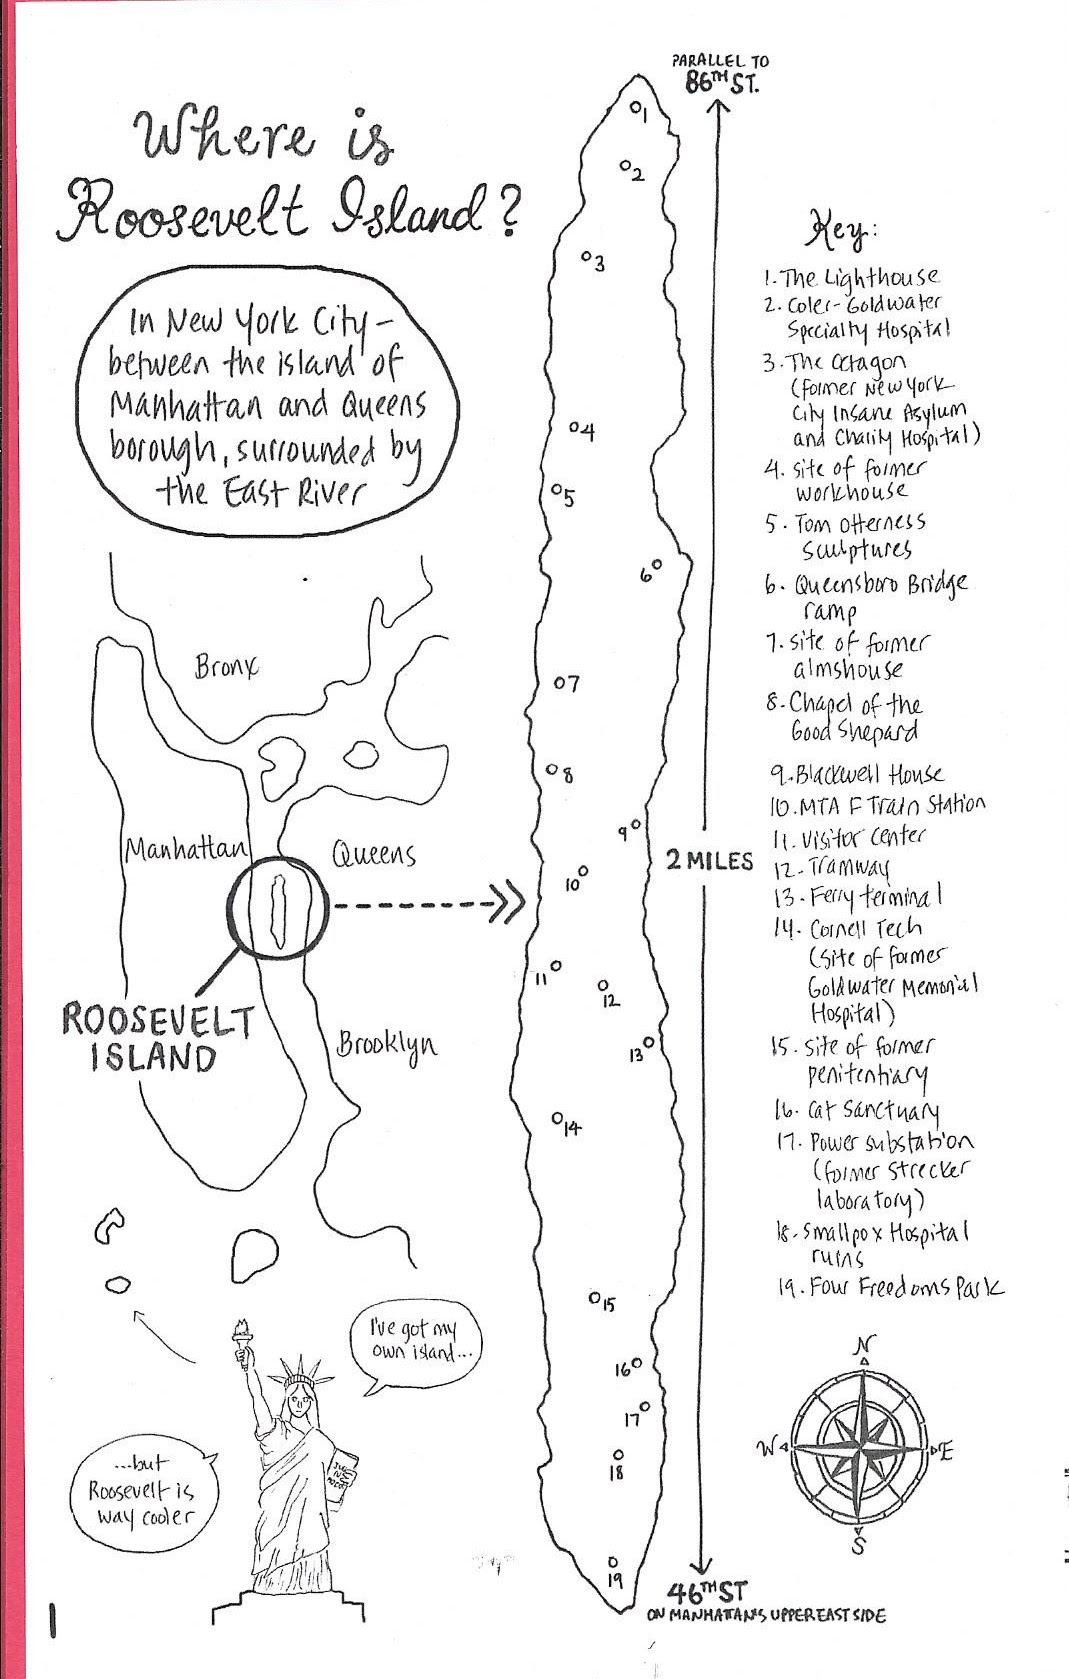 Where is
Roosevelt Island?
In New York City-
between the island of
Manhattan and Queens
borough, surrounded by
the East River
Bronx
Manhattan
Queens
ROOSEVELT
ISLAND
Brooklyn
I've got my
own island...
...but
Roosevelt is
way cooler
1
PARALLEL TO
86TH ST.
1
2
3
4
5
6
7
8
9
10
11
12
13
14
15
16
17
18
19
2 MILES
46TH ST
ON MANHATTAN'S UPPER EAST SIDE
Key:
1. The Lighthouse
2. Coler-Goldwater
Specialty Hospital
3. The Octagon
(former New York
City Insane Asylum
and Charity Hospital)
4. site of former
workhouse
5. Tom Otterness
sculptures
6. Queensboro Bridge
ramp
7. site of former
almshouse
8. Chapel of the
Good Shepard
9. Blackwell House
10. MTA F Train Station
11. Visitor Center
12. Tramway
13. Ferry terminal
14. Cornell Tech
(site of former
Goldwater Memorial
Hospital)
15. site of former
penitentiary
16. Cat Sanctuary
17. Power substation
(former Strecker
laboratory)
18. Smallpox Hospital
ruins
19. Four Freedoms Park
N
W
E
S